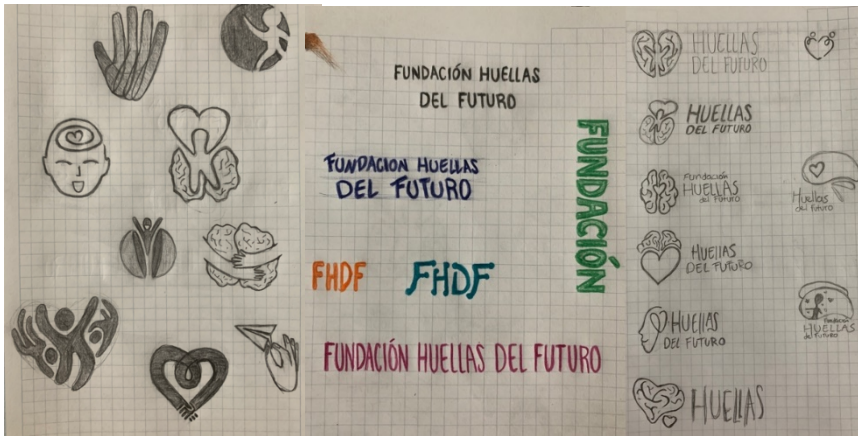 FUNDACIÓN HUELLAS
DEL FUTURO
FUNDACION HUELLAS
DEL FUTURO
FUNDACIÓN
FHDF
FHDF
FUNDACIÓN HUELLAS DEL FUTURO
HUELLAS
DEL FUTURO
HUELLAS
DEL FUTURO
Fundación
HUELLAS
del Futuro
Huellas
del Futuro
HUEllAS
DEL FUTURO
HUEllAS
DEL FUTURO
Fundación
HUELLAS
del Futuro
HUELLAS